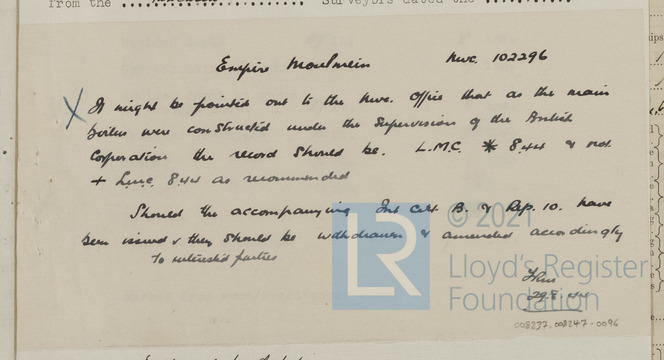 from the Surveyors dated the
Empire Moulmein Nwc. 102296
X It might be pointed out to the Nwc. Office that as the main
boilers were constructed under the Supervision of the British
Corporation the record should be. L.M.C. * 8.44 & not
+ L.M.C. 8.44 as recommended
Should the accompanying Int Cert B. & Rep. 10. have
been issued & they should be withdrawn & amended accordingly
to interested parties
29.8.44
008237-008247-0096
© 2021
LR
Lloyd's Register
Foundation